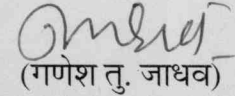 (गणेश तु. जाधव)